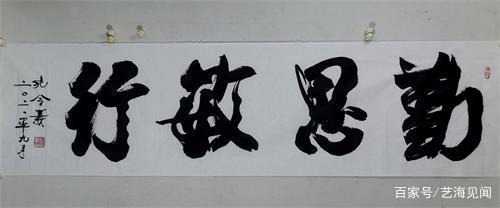 勤思敏行
二〇二一年九月
百家号/艺海见闻